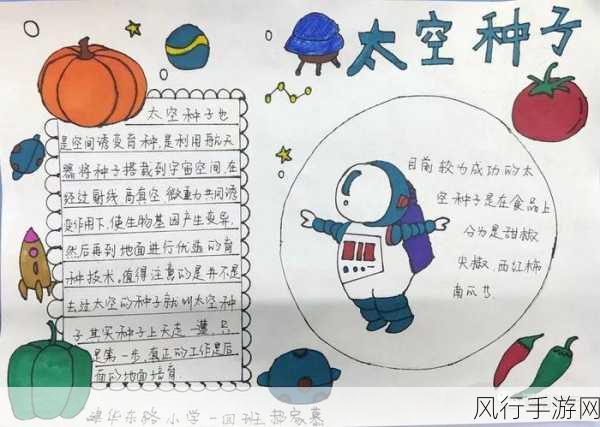 太空种子
太空种子也
是空间诱变育种,是利用航天
器将种子搭载到宇宙空间,在
经过射线、高真空、微重力共同诱
变作用下,使生物基因产生变异,
然后再到地面进行优选的育
种技术。值得注意的是并不是
去过太空的种子就叫太空种
子其实种子上天走一遭,只
是第一步,真正的工作是后
面的地面培育.
目前较为成功的太
空种子是在食品上
分为是甜椒
尖椒、西红柿
南瓜等.
华东路小学一四班
风行手游网